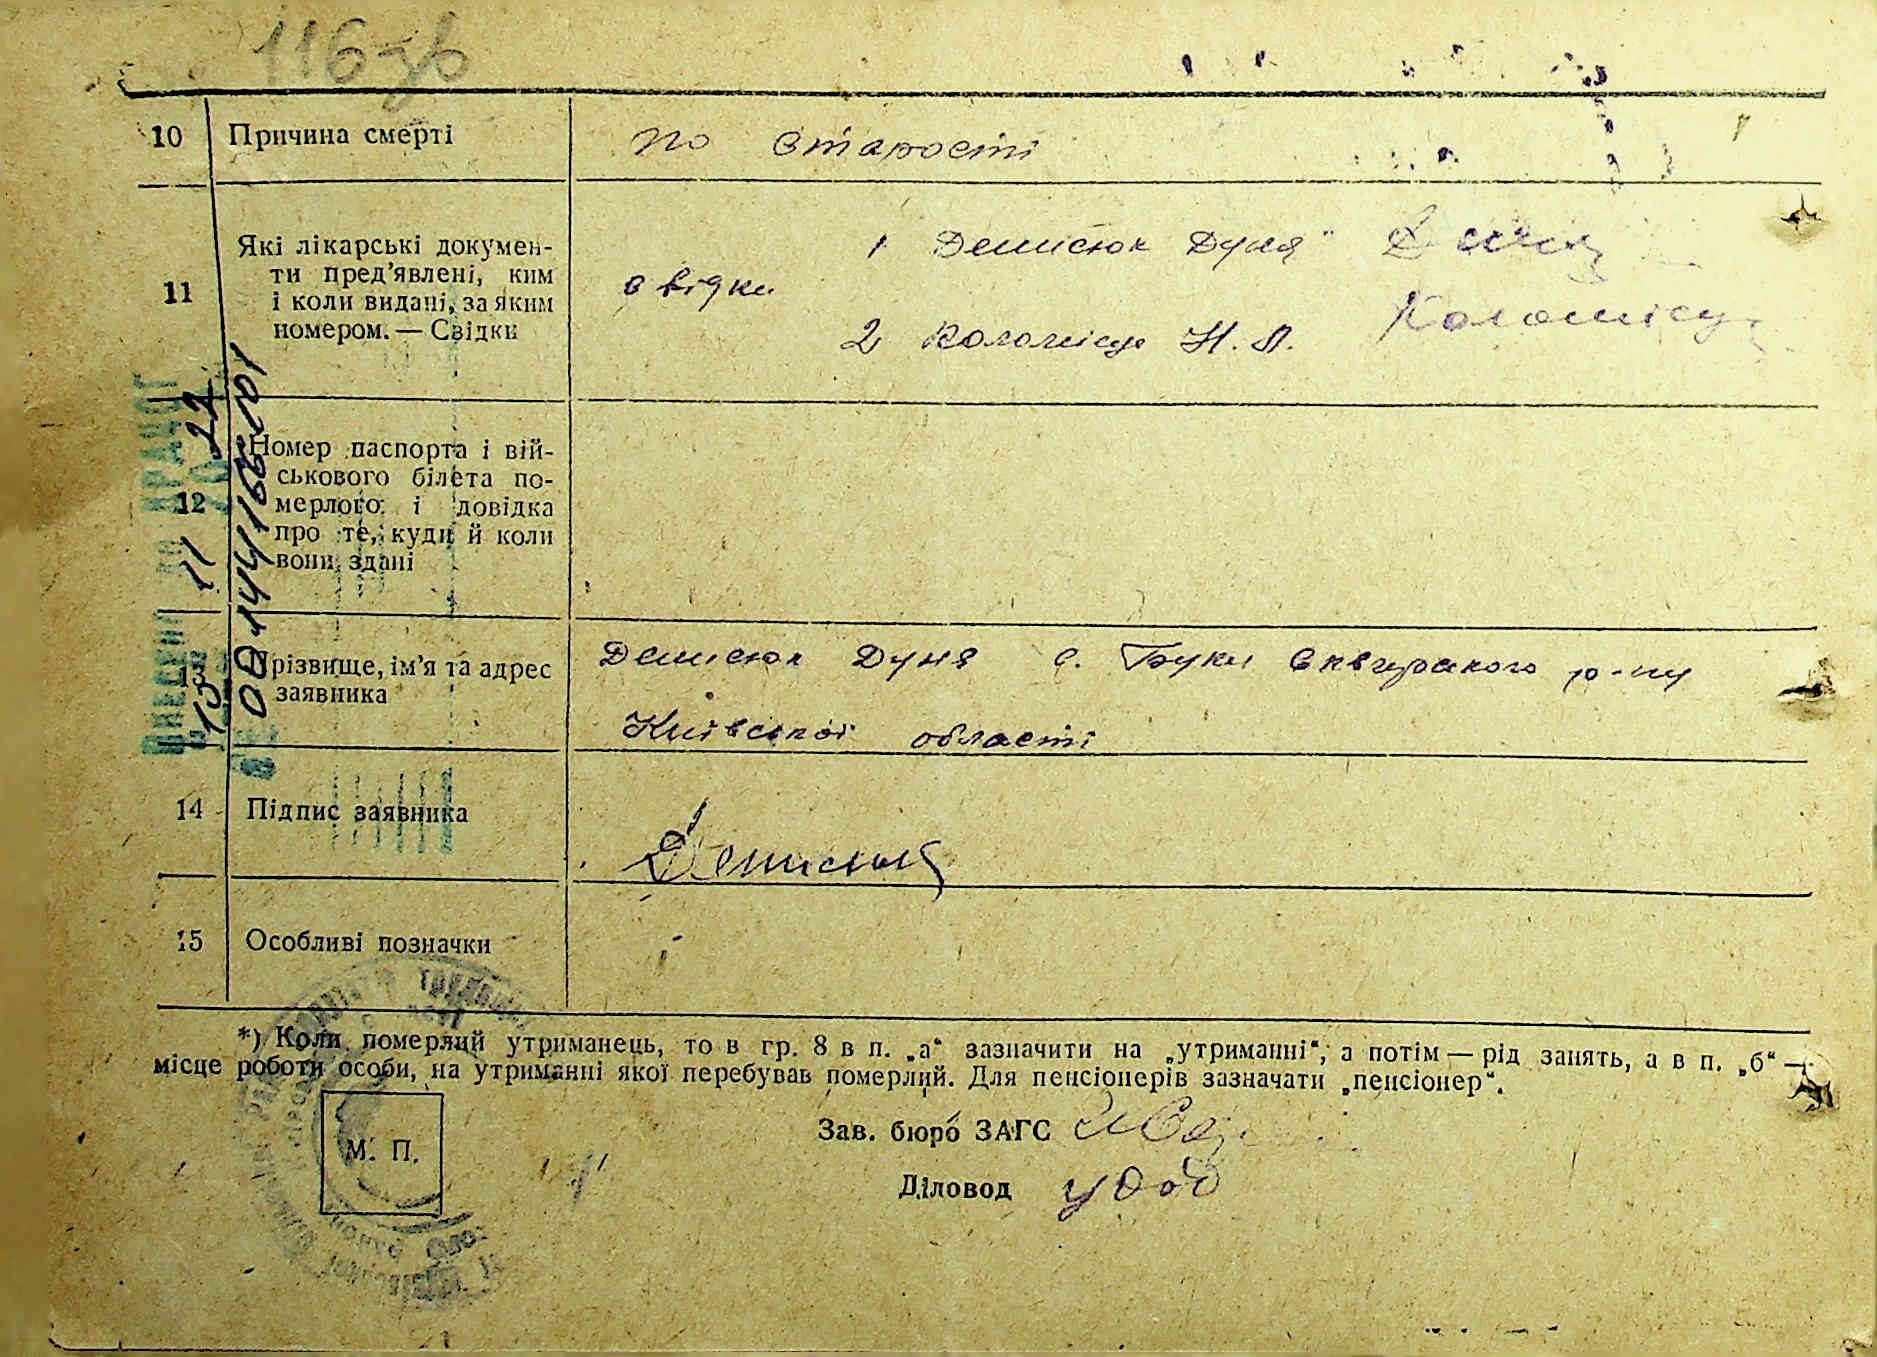 116 зв
10 Причина смерті по старості
Які лікарські докумен-
ти пред’явлені, ким
11 і коли видані, за яким
номером. — Свідки
свідки
1 Денисюк Дуня
2 Коломієць Н. П.
Коломієць
Номер паспорта і вій-
ськового білета по-
12 мерлого і довідка
про те, куди й коли
вони здані
13 Прізвище, ім’я та адрес
заявника
Денисюк Дуня с. Буки Сквирського р-ну
Київської області
14 Підпис заявника
Денисюк
15 Особливі позначки
*) Коли померлий утриманець, то в гр. 8 в п. „а“ зазначити на „утриманні“, а потім — рід занять, а в п. „б“ —
місце роботи особи, на утриманні якої перебував померлий. Для пенсіонерів зазначати „пенсіонер“.
Зав. бюро ЗАГС
М. П.
Діловод